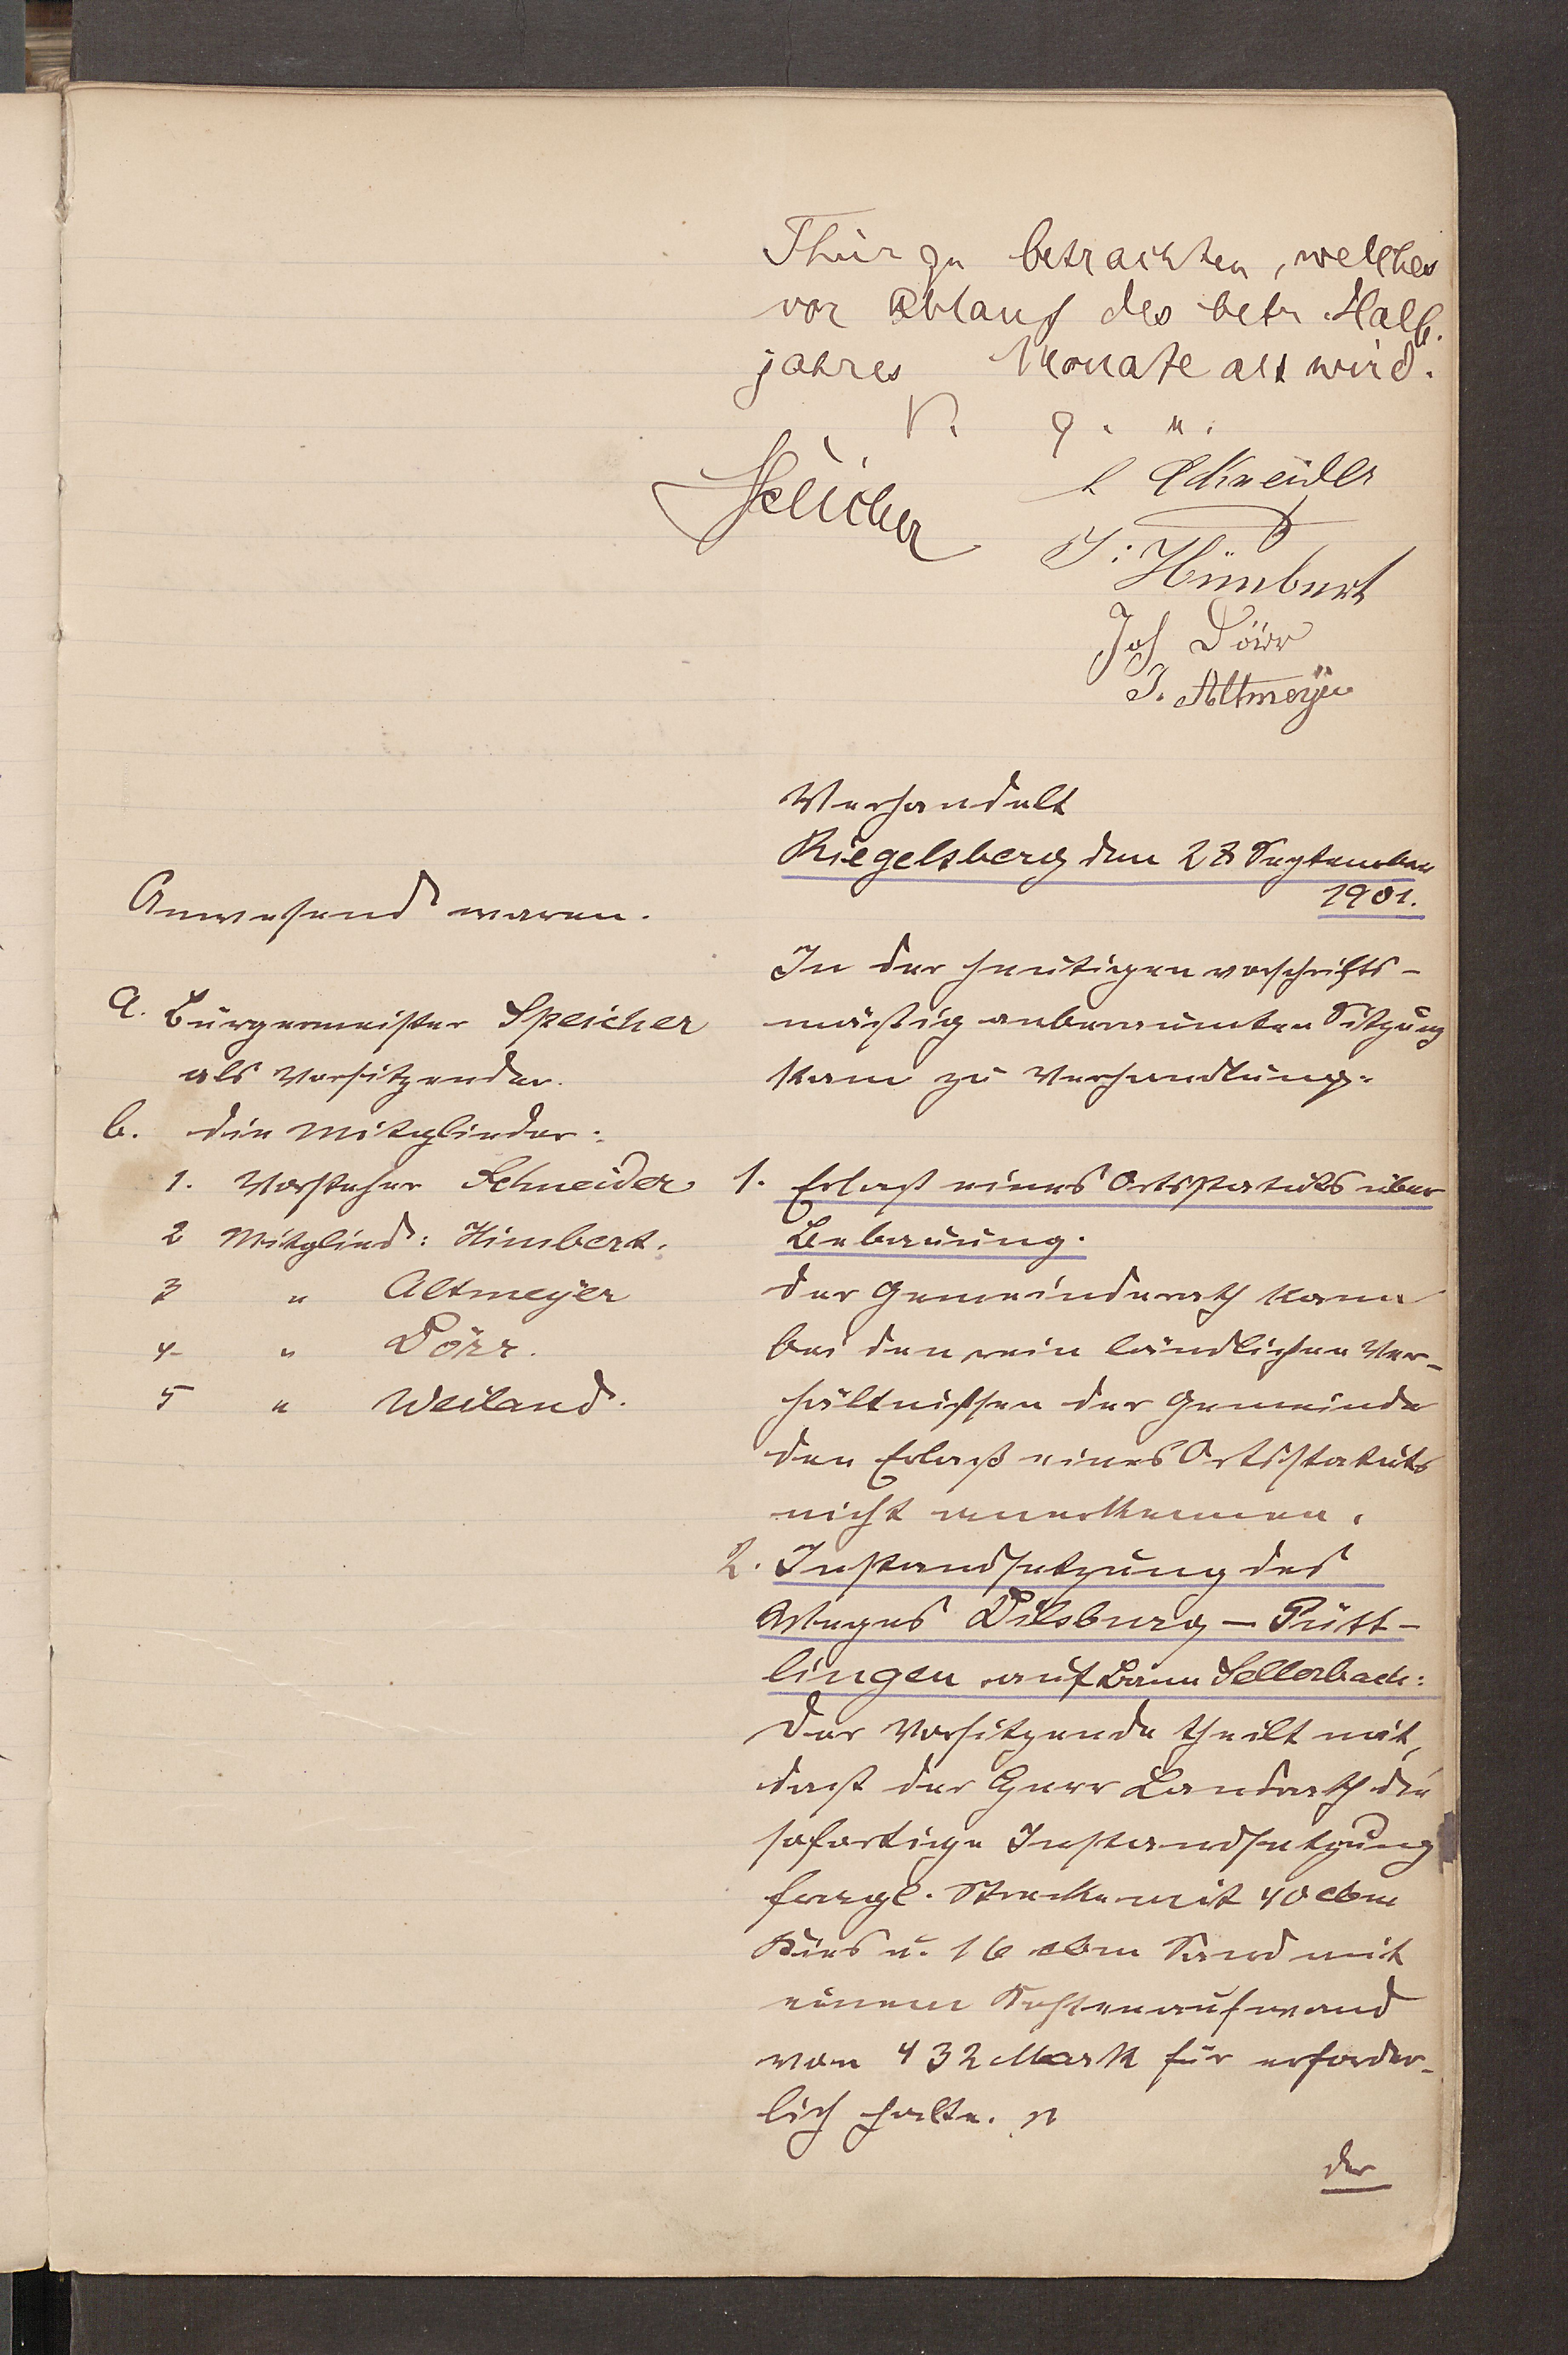 Thier zu betrachten, welches
vor Ablauf des betr. Halb-
jahres Monate alt wird.
V. g. u.
Speicher
Schneider
J: Himbert
Joh Dörr
J. Altmeÿer
Verhandelt
Riegelsberg den 28 September
1901.
Anwesend waren.
a. Bürgermeister Speicher
als Vorsitzender.
b. die Mitglieder:
1. Vorsteher Schneider
2 Mitglied: Himbert.
3 " Altmeÿer
4 " Dörr.
5 " Weiland.
In der heutigen vorschrifts-
mäßig anberaumten Sitzung
kam zu Verhandlung:
1. Erlaß eines Ortsstatuts über
Bebauung.
Der Gemeinderath kann
bei den rein ländlichen Ver-
hältnißen der Gemeinde
den Erlaß eines Ortsstatuts
nicht anerkennen.
2. Instandsetzung des
Weges Dilsburg - Pütt-
lingen auf Bann Sellerbach:
Der Vorsitzende theilt mit,
daß der Herr Landrath die
sofortige Instandsetzung
fragl. Strecke mit 40 cbm
Kies u. 16 cbm Sand mit
einem Kostenaufwand
von 432 Mark für erforder-
lich halte.
der